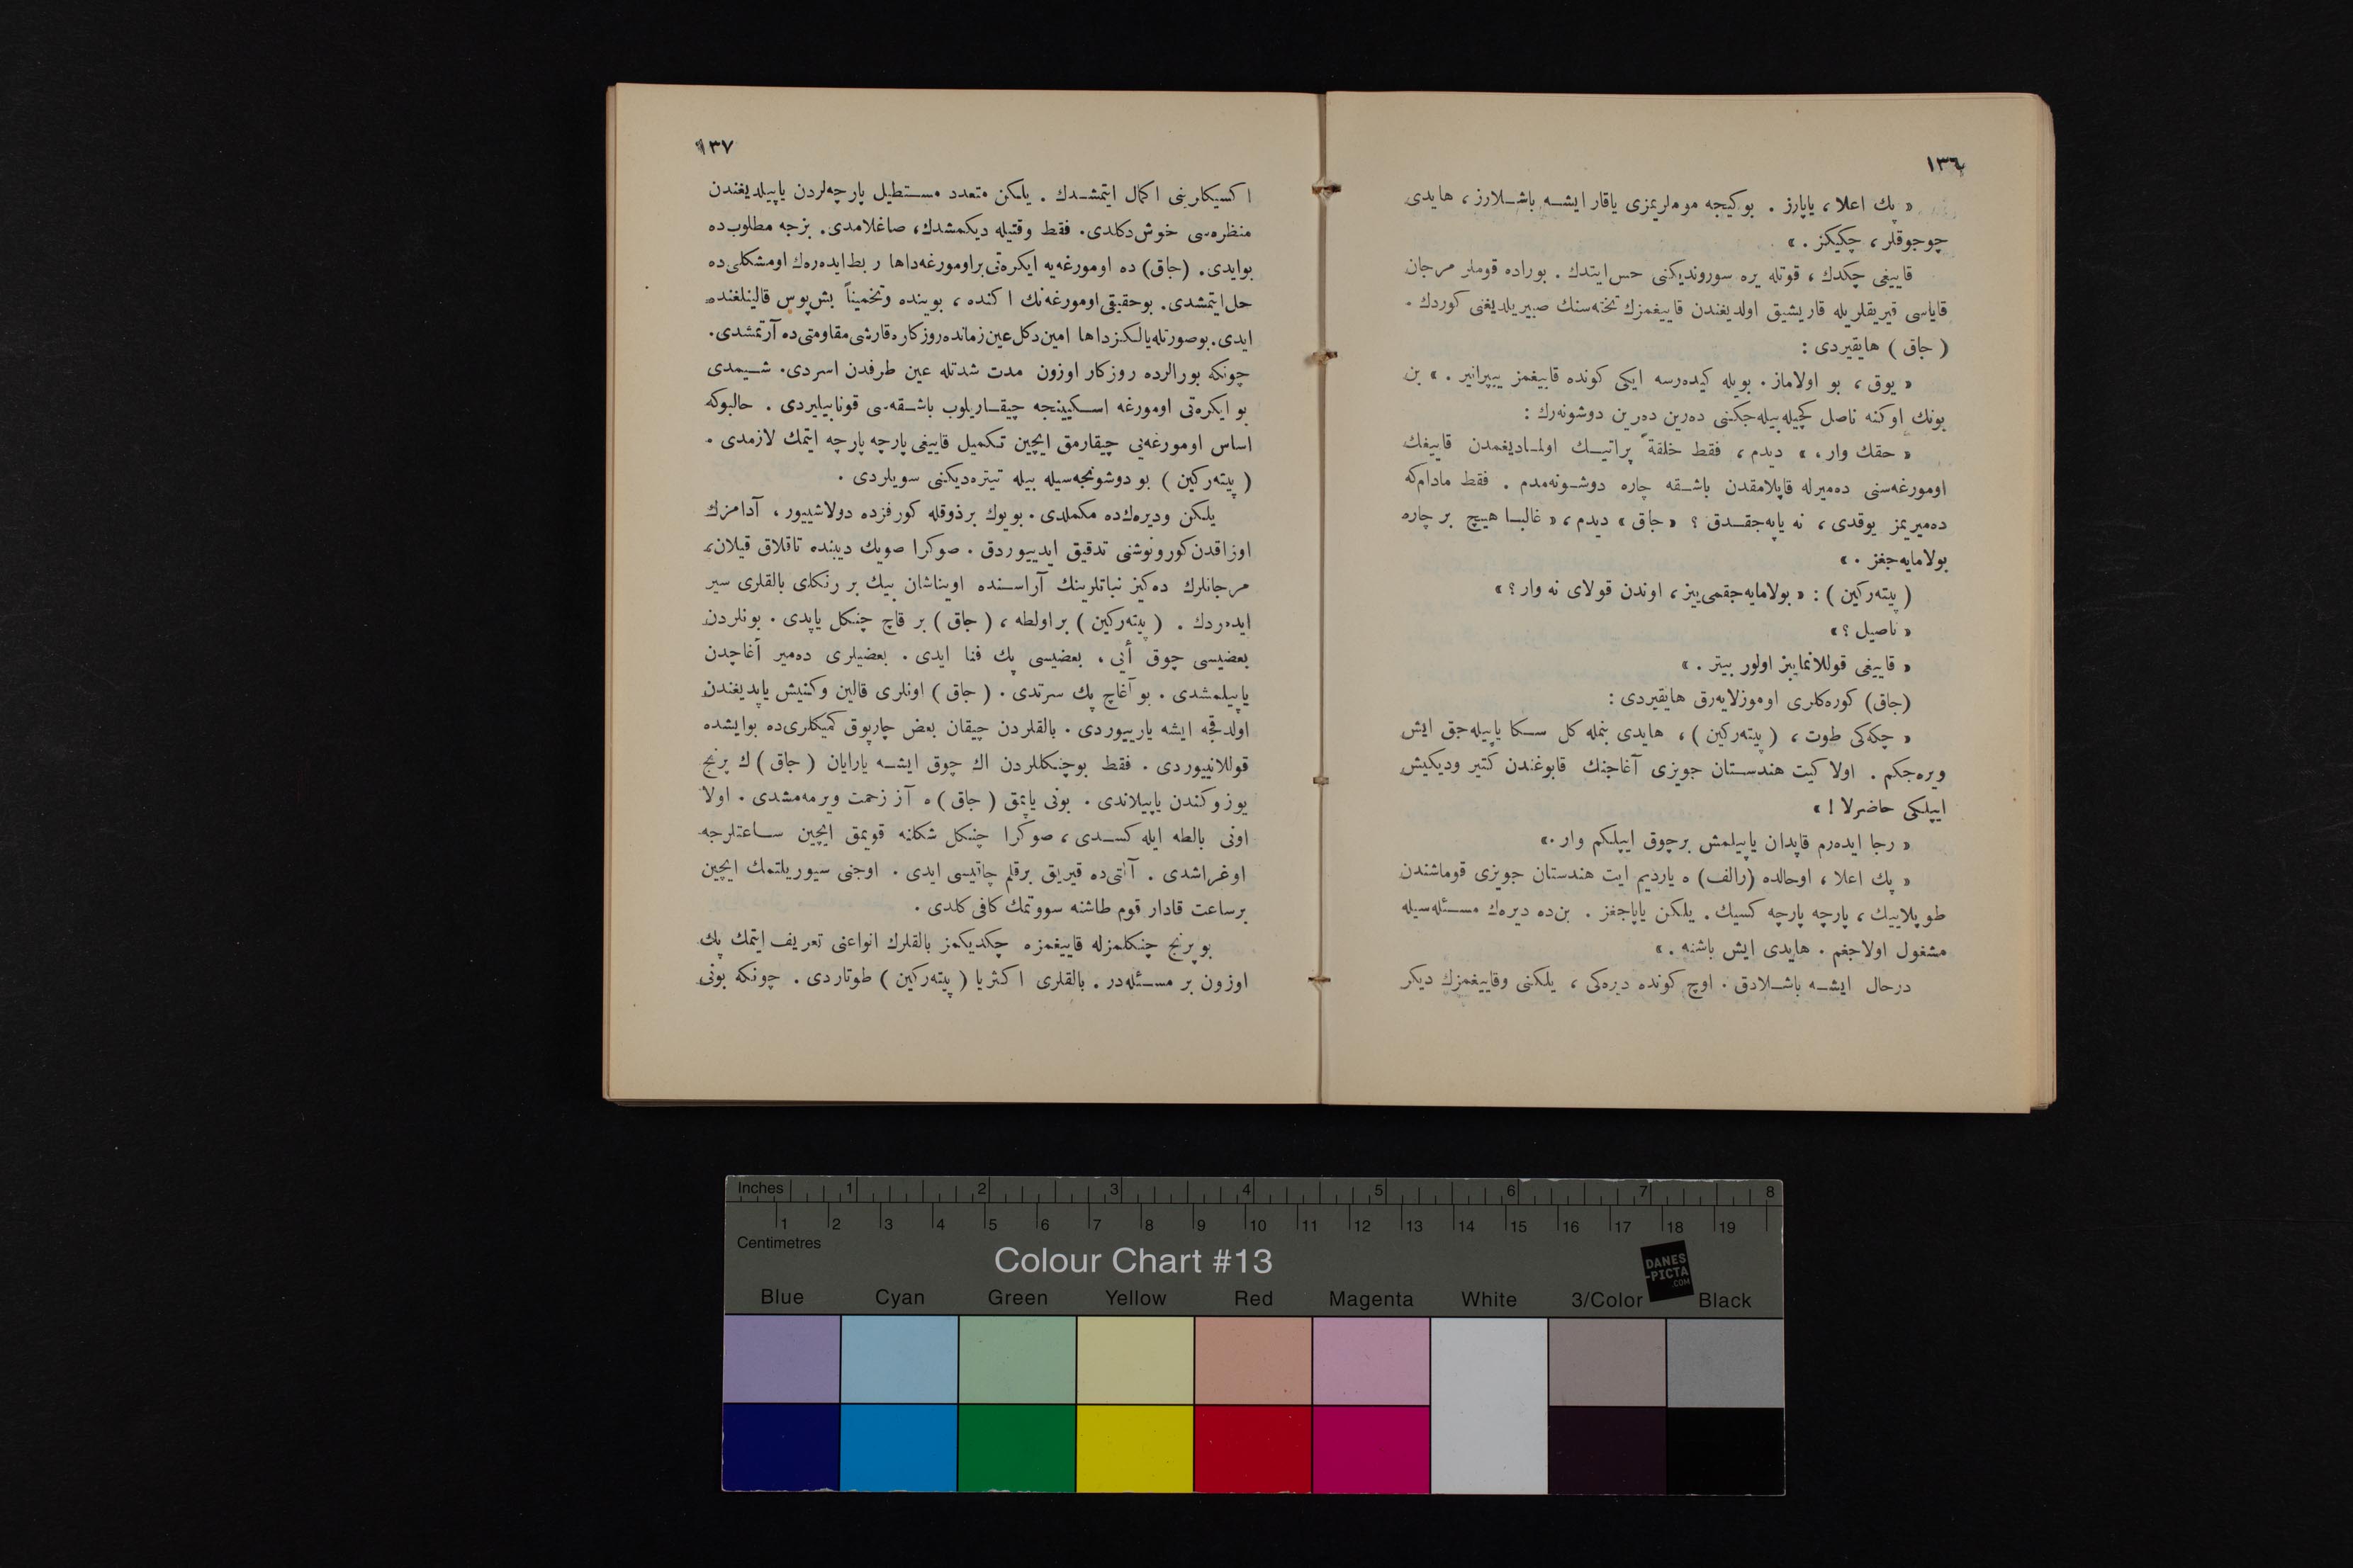 ١٣٦
« پك اعلا ، یاپارز . بو كیجه موملریمزی یاقار ایشه باشلارز ، هایدی
چوجوقلر ، چكیكز . »
قاییغی چكدك ، قوتله یره سوروندیكنی حس ایتدك . بوراده قوملر مرجان
قایاسی قیریقلریله قاریشیق اولدیغندن قاییغمزك تخته‌سنك صییریلدیغنی كوردك .
( جاق ) هایقیردی :
« یوق ، بو اولاماز . بویله كیده‌رسه ایكی كونده قاییغمز ییپرانیر . » بن
بونك اوكنه ناصل كچیله‌بیله‌جكنی ده‌رین ده‌رین دوشونه‌رك :
« حقك وار ، » دیدم ، فقط خلقةً پراتیك اولمادیغمدن قاییغك
اومورغه‌سنی ده‌میرله قاپلامقدن باشقه چاره دوشونه‌مدم . فقط مادام‌كه
ده‌میریمز یوقدی ، نه یاپه‌جقدق ؟ « جاق » دیدم ، « غالبا هیچ بر چاره
بولامایه‌جغز . »
( پیته‌ركین ) : « بولامایه‌جقمی‌ییز ، اوندن قولای نه وار ؟ »
« ناصیل ؟ »
« قاییغی قوللانماییز اولور بیتر . »
(جاق) كوره‌كلری اوموزلایه‌رق هایقیردی :
« چكه‌كی طوت ، ( پیته‌ركین ) ، هایدی بنمله كل سكا یاپیله‌جق ایش
ویره‌جكم . اولا كیت هندستان جویزی آغاجنك قابوغندن كتیر ودیكیش
ایپلكی حاضرلا ! »
« رجا ایده‌رم قاپدان یاپیلمش برچوق ایپلكم وار . »
« پك اعلا ، اوحالده (رالف) ه یاردیم ایت هندستان جویزی قوماشندن
طوپلاییك ، پارچه پارچه كسیك . یلكن یاپاجغز . بن‌ده دیره‌ك مسئله‌سیله
مشغول اولاجغم . هایدی ایش باشنه . »
درحال ایشه باشلادق . اوچ كونده دیره‌كی ، یلكنی وقاییغمزك دیكر
١٣٧
اكسیكلرینی اكمال ایتمشدك . یلكن متعدد مستطیل پارچه‌لردن یاپیلدیغندن
منظره‌سی خوش دكلدی . فقط وقتیله دیكمشدك ، صاغلامدی . بزجه مطلوب‌ده
بوایدی . (جاق) ده اومورغه‌یه ایكره‌تی براومورغه‌داها ربط‌ایده‌رك اومشكلی‌ده
حل ایتمشدی . بوحقیقی اومورغه‌نك اكنده ، بوینده وتخمیناً بش پوس قالینلغنده
ایدی . بوصورتله یالكز داها امین دكل عین زمانده روزكاره قارشی مقاومتی‌ده آرتمشدی .
چونكه بورالرده روزكار اوزون مدت شدتله عین طرفدن اسردی . شیمدی
بو ایكره‌تی اومورغه اسكیینجه چیقاریلوب باشقه‌سی قونابیلیردی . حالبوكه
اساس اومورغه‌یی چیقارمق ایچین تكمیل قاییغی پارچه پارچه ایتمك لازمدی .
( پیته‌ركین ) بو دوشونجه‌سیله بیله تیتره‌دیكنی سویلردی .
یلكن ودیره‌ك‌ده مكملدی . بویوك برذوقله كورفزده دولاشییور ، آدامزك
اوزاقدن كورونوشنی تدقیق ایدییوردق . صوكرا صویك دیبنده تاقلاق قیلان ،
مرجانلرك ده‌كیز نباتلرینك آراسنده اویناشان بیك بر رنكلی بالقلری سیر
ایده‌ردك . ( پیته‌ركین ) براولطه ، ( جاق ) بر قاچ چنكل یاپدی . بونلردن
بعضیسی چوق أیی ، بعضیسی پك فنا ایدی . بعضیلری ده‌میر آغاجدن
یاپیلمشدی . بو آغاچ پك سرتدی . ( جاق ) اونلری قالین وكنیش یاپدیغندن
اولدقجه ایشه یارییوردی . بالقلردن چیقان بعض چارپوق كمیكلری‌ده بوایشده
قوللانییوردی . فقط بوچنكللردن اك چوق ایشه یارایان ( جاق ) ك پرنج
یوزوكندن یاپیلاندی . بونی یاپمق ( جاق ) ه آز زحمت ویرمه‌مشدی . اولا
اونی بالطه ایله كسدی ، صوكرا چنكل شكلنه قویمق ایچین ساعتلرجه
اوغراشدی . آلتی‌ده قیریق برقلم چاقیسی ایدی . اوجنی سیوریلتمك ایچین
برساعت قادار قوم طاشنه سورتمك كافی كلدی .
بو پرنج چنكلمزله قاییغمزه چكدیكمز بالقلرك انواعنی تعریف ایتمك پك
اوزون بر مسئله‌در . بالقلری اكثریا ( پیته‌ركین ) طوتاردی . چونكه بونی
Inches 1 2 3 4 5 6 7 8
1 2 3 4 5 6 7 8 9 10 11 12 13 14 15 16 17 18 19
Centimetres
Colour Chart #13
DANES
-PICTA
.COM
Blue Cyan Green Yellow Red Magenta White 3/Color Black